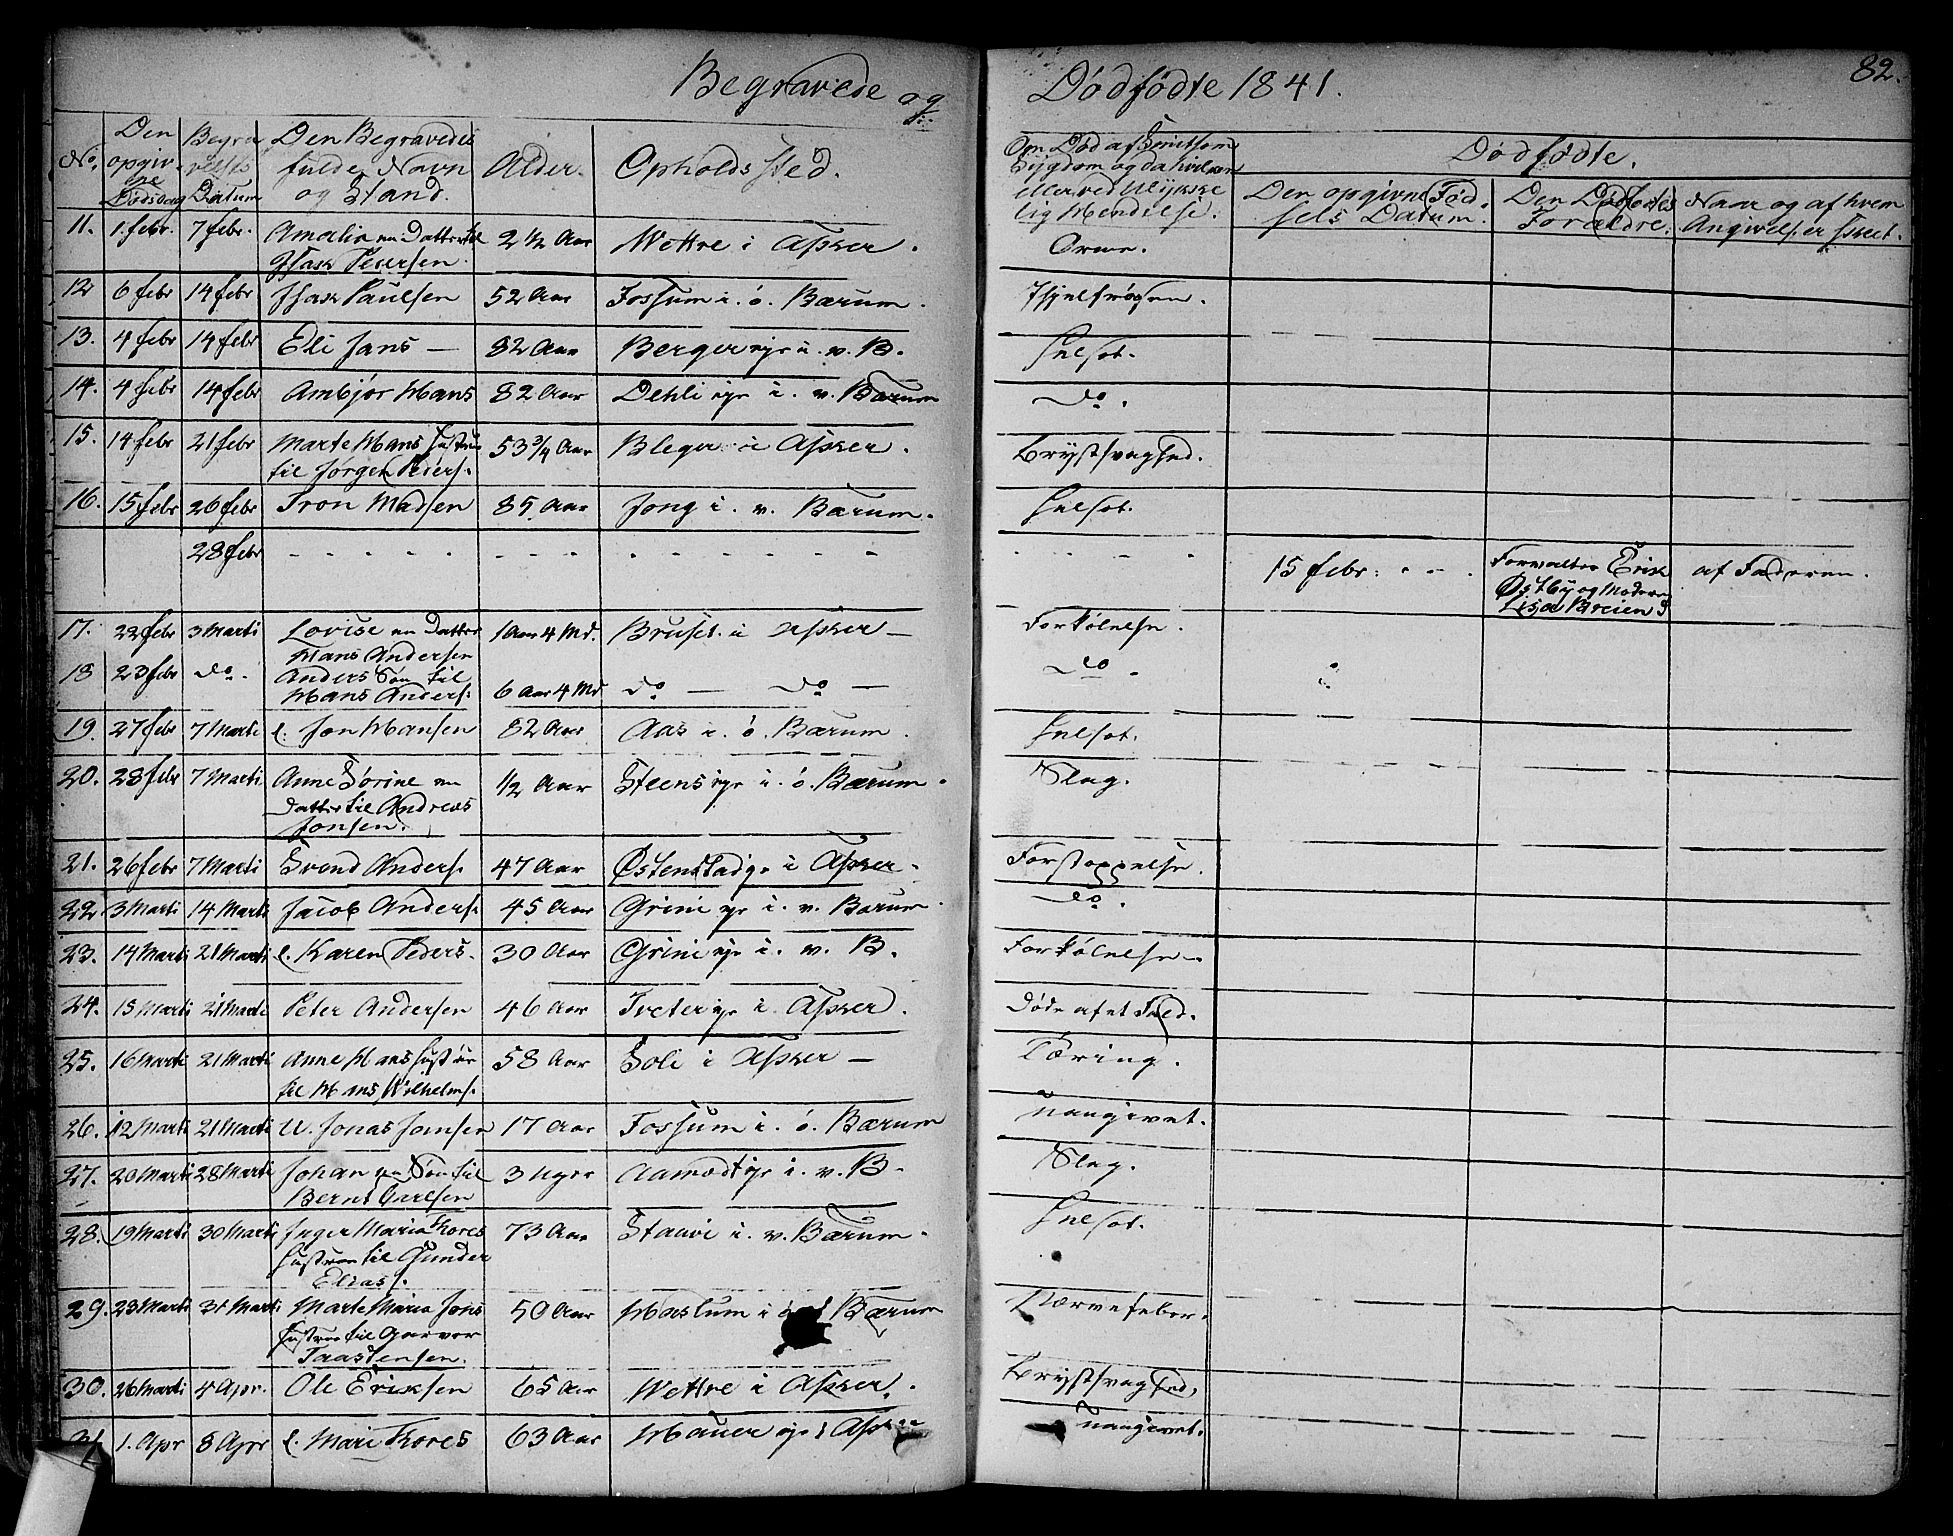 Begravede og Dødfødte 1841. 82.
No. Den opgivne Dødsdag Begravelses Datum Den Begravedes fulde Navn og Stand. Alder. Opholds Sted. Om Død af Smitsom Sygdom og da hvilken eller ved Ulykkelig Hendelse. Dødfødte.
Den opgivne Fødsels Datum. Den Dødfødtes Forældre. Naar og af hvem Angivelsen er skeet.
11. 1. febr. 7 febr. Amalia en Datter til 2 1/2 Aar Wettre i Asker. Orme.
Isak Petersen.
12 6 febr 14 febr Isak Paulsen 52 Aar Fossum i. ø. Bærum.
13. 4 febr 14 febr Eli Jans — 82 Aar Berger eje i. v. B. Sulsot.
14. 4 febr 14 febr Ambjør Hans 82 Aar Dehli eje i. v. Bærum do.
15. 14 febr 21 febr Marte Hans Hustru 53 3/4 Aar Bleger i Asker. Brystsvaghed.
til Jørgen Peders.
16. 15 febr 26 febr Tron Madsen 85. Aar Jong i. v. Bærum. Sulsot.
28 febr - - - - - 15 febr. - - Forvalter Erik af Faderen.
Østby og Moderen
Lisa Breien
17. 22 febr 3 Marti Lovise en Datter 1 Aar 4 Md. Bruset i Asker — Forkølelse.
Hans Andersen
18 23 febr do. Anders Søn til 6 Aar 4 Md do — do — do.
Hans Anders.
19. 27 febr 7 Marti e. Jon Hansen 82 Aar Aas i. ø. Bærum. Sulsot.
20. 28 febr 7 Marti Anne Sørine en 1/2 Aar Steens eje i. ø. Bærum. Slag.
Datter til Andreas
Jonsen.
21. 26 febr 7 Marti Svend Anders. 47 Aar Østenstad eje i Asker. Forstoppelse.
22 3 Marti 14 Marti Jacob Anders. 45 Aar Grini eje i. v. Bærum. do.
23. 14 Marti 21 Marti e. Karen Peders. 30 Aar Grini eje i. v. B. Forkølelse.
24. 15 Marti 21 Marti Peter Andersen 46 Aar Tveter eje i. Asker. Døde af et Fald.
25. 16 Marti 21 Marti Anne Hans Hustrue 58 Aar Soli i Asker — Tæring.
til Hans Wilhelms.
26. 12 Marti 21 Marti U. Jonas Jansen 17 Aar Fossum i. ø. Bærum Uangivet.
27. 20 Marti 28 Marti Johan en Søn til 3 Uger Aamodt eje i. v. B. Slag.
Bernt Carlsen
28. 19 Marti 30 Marti Inger Maria Thores 73 Aar Staavi i. v. Bærum. Sulsot.
Hustrue til Gunder
Elias.
29. 23 Marti 31 Marti Marte Maria Jons 50 Aar Haslum i Bærum Nervefeber.
Hustrue til Garver
Taastensen.
30. 26 Marti 4 Apr. Ole Eriksen 65 Aar Wettre i Asker. Brystsvaghed.
31 1. Apr 8 Apr e. Mari Thores 63 Aar Hauer eje i Asker Uangivet.